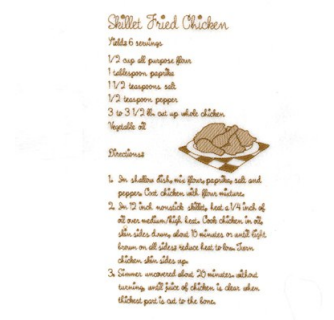 Skillet Fried Chicken
Yields 6 servings
1/2 cup all purpose flour
1 tablespoon paprika
1 1/2 teaspoons salt
1/2 teaspoon pepper
3 to 3 1/2 lb. cut up whole chicken
Vegetable oil
Directions:
1. In shallow dish, mix flour, paprika, salt and
pepper. Coat chicken with flour mixture.
2. In 12 inch nonstick skillet, heat a 1/4 inch of
oil over medium/high heat. Cook chicken in oil,
skin sides down, about 15 minutes or until light
brown on all sides; reduce heat to low. Turn
chicken skin sides up.
3. Simmer uncovered about 20 minutes, without
turning, until juice of chicken is clear when
thickest part is cut to the bone.